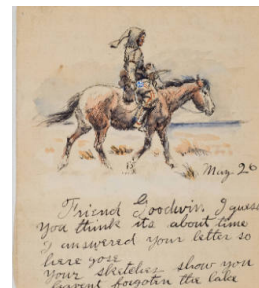 May. 26
Friend Goodwin. I guess
you think its about time
I answered your letter so
here gose
Your sketches show you
havent forgotin the lake